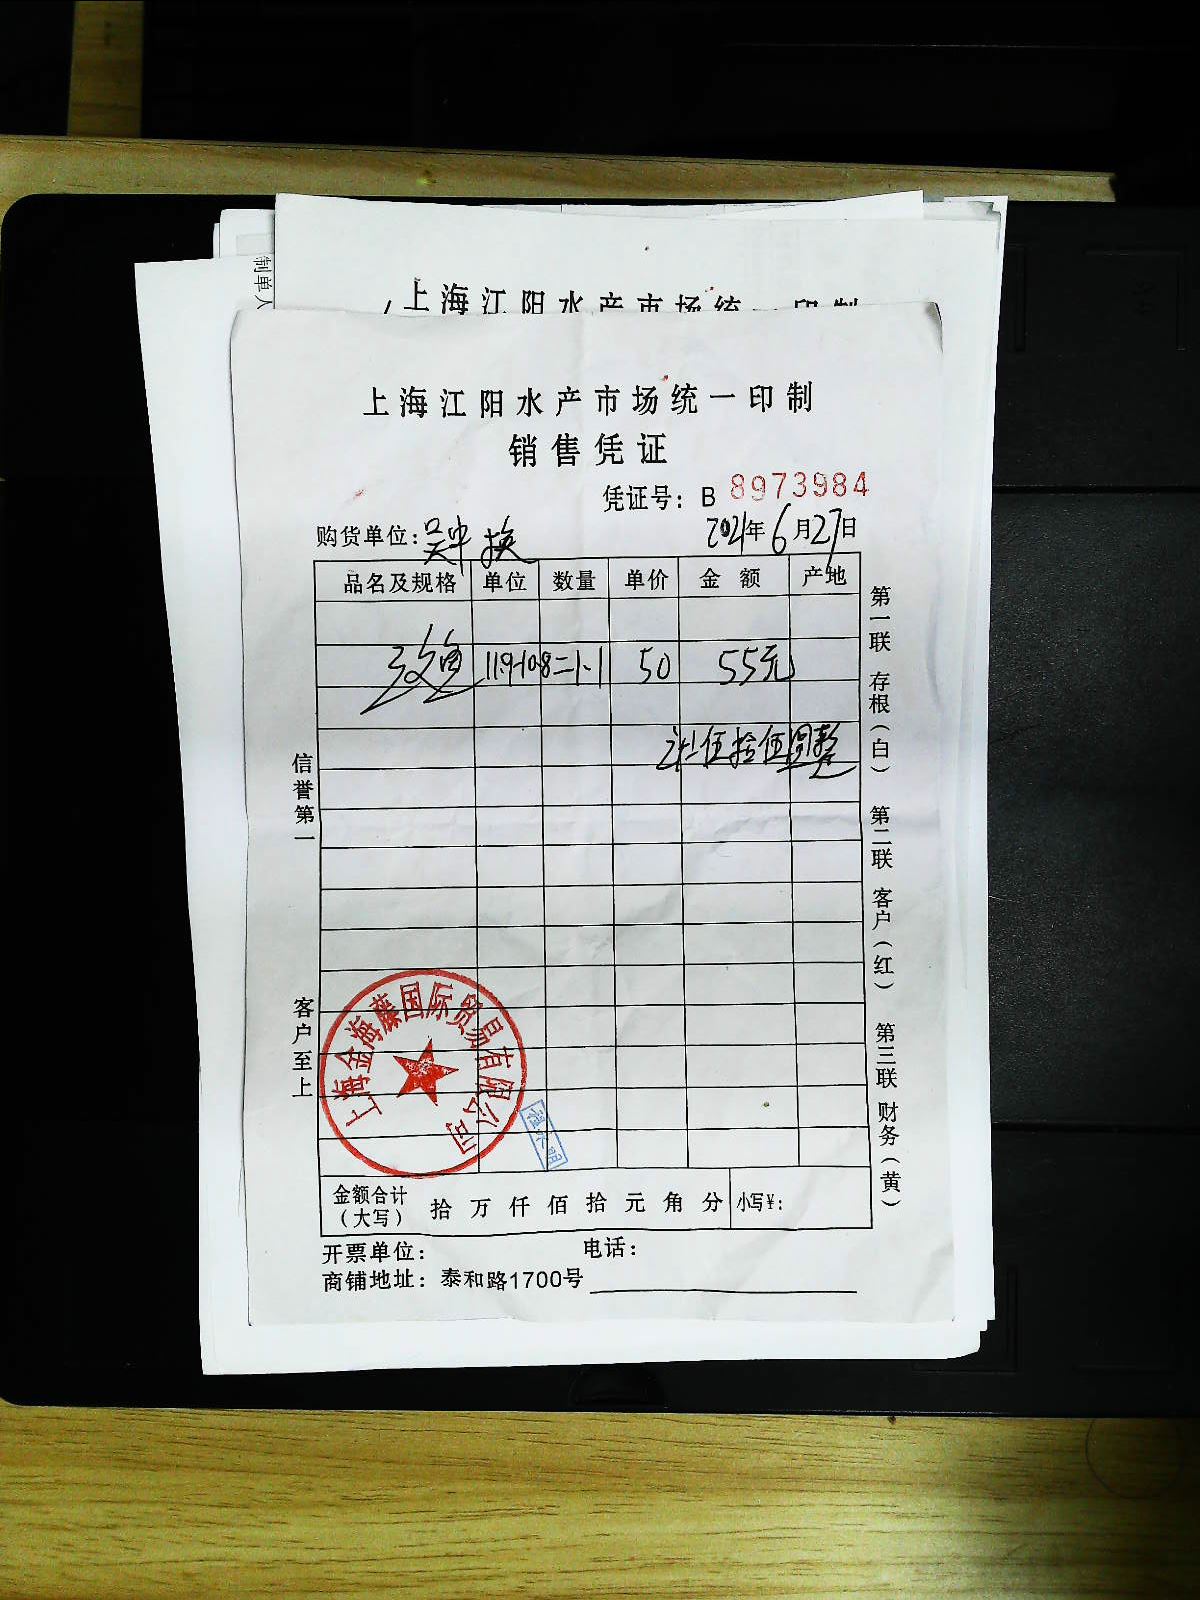 制单人
上海江阳水产市场统一印制
上海江阳水产市场统一印制
销售凭证
凭证号：B 8973984
购货单位：吴中 换 2021年6月27日
品名及规格 单位 数量 单价 金额 产地
三文鱼 11.9-10.8=1.1 50 55元
计：伍拾伍圆整
信誉第一
客户至上
第一联 存根（白） 第二联 客户（红） 第三联 财务（黄）
上海金海藤国际贸易有限公司
程永明
金额合计（大写） 拾 万 仟 佰 拾 元 角 分 小写¥：
开票单位： 电话：
商铺地址：泰和路1700号